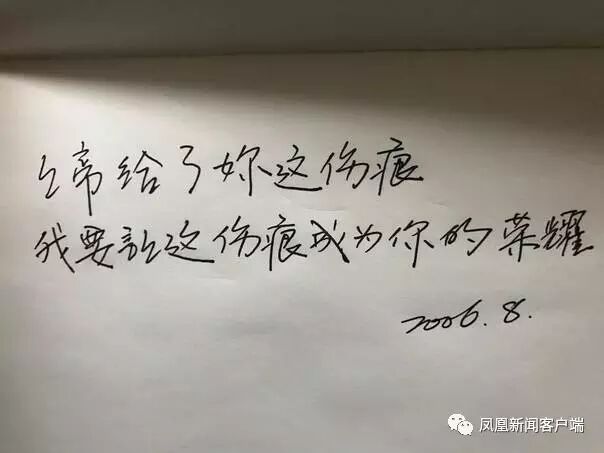 上帝给了妳这伤痕
我要让这伤痕成为你的荣耀
2006.8.
凤凰新闻客户端